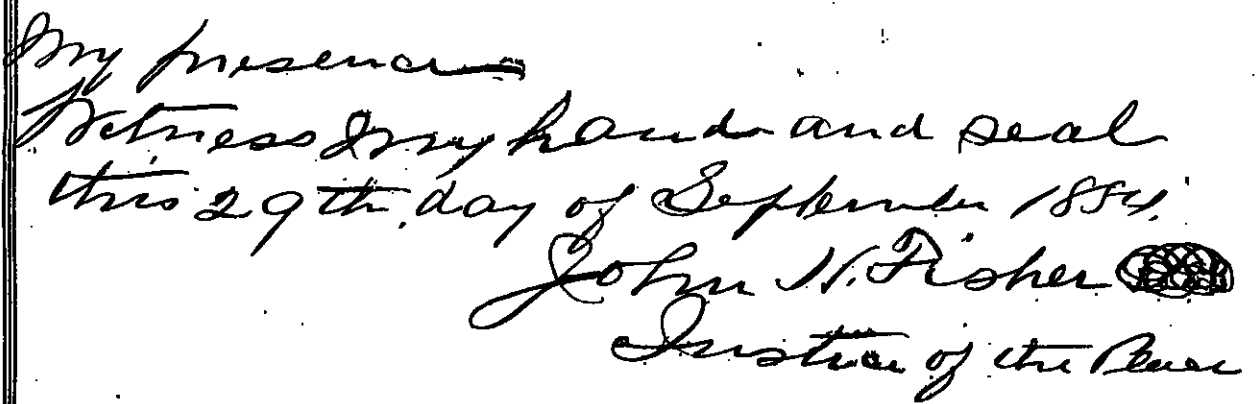 My presence
Witness My hand and seal
this 29th. day of September 1884.
John H. Fisher
Justice of the Peace